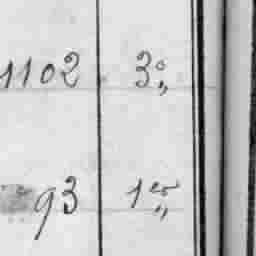 1102 3º„
93 1er„